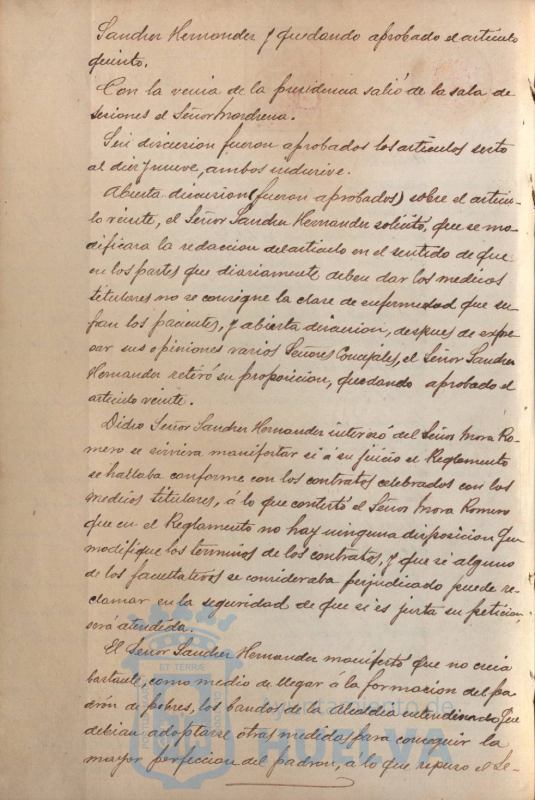 Sanchez Hernandez y quedando aprobado el artículo
quinto.
Con la venia de la presidencia salió de la sala de
sesiones el Señor Mordrena.
Sin discusion fueron aprobados los artículos sexto
al diez y nueve, ambos inclusive.
Abierta discusion (fueron aprobados) sobre el artícu-
lo veinte, el Señor Sanchez Hernandez solicitó, que se mo-
dificara la redaccion del artículo en el sentido de que
en los partes que diariamente deben dar los medicos
titulares no se consigne la clase de enfermedad que su-
fran los pacientes, y abierta discusion, despues de expre-
sar sus opiniones varios Señores Concejales, el Señor Sanchez
Hernandez retiró su proposicion, quedando aprobado el
artículo veinte.
Dicho Señor Sanchez Hernandez interesó del Señor Mora Ro-
mero se sirviera manifestar si á su juicio el Reglamento
se hallaba conforme con los contratos celebrados con los
medicos titulares, á lo que contestó el Señor Mora Romero
que en el Reglamento no hay ninguna disposicion que
modifique los terminos de los contratos, y que si alguno
de los facultativos se consideraba perjudicado puede re-
clamar en la seguridad de que si es justa su peticion,
será atendida.
El Señor Sanchez Hernandez manifestó que no creia
bastante, como medio de llegar á la formacion del pa-
drón de pobres, los bandos de la Alcaldía entendiendo que
debian adoptarse otras medidas para conseguir la
mayor perfeccion del padron, á lo que repuso el Se-
ET TERRÆ
Ayuntamiento de
HUELVA